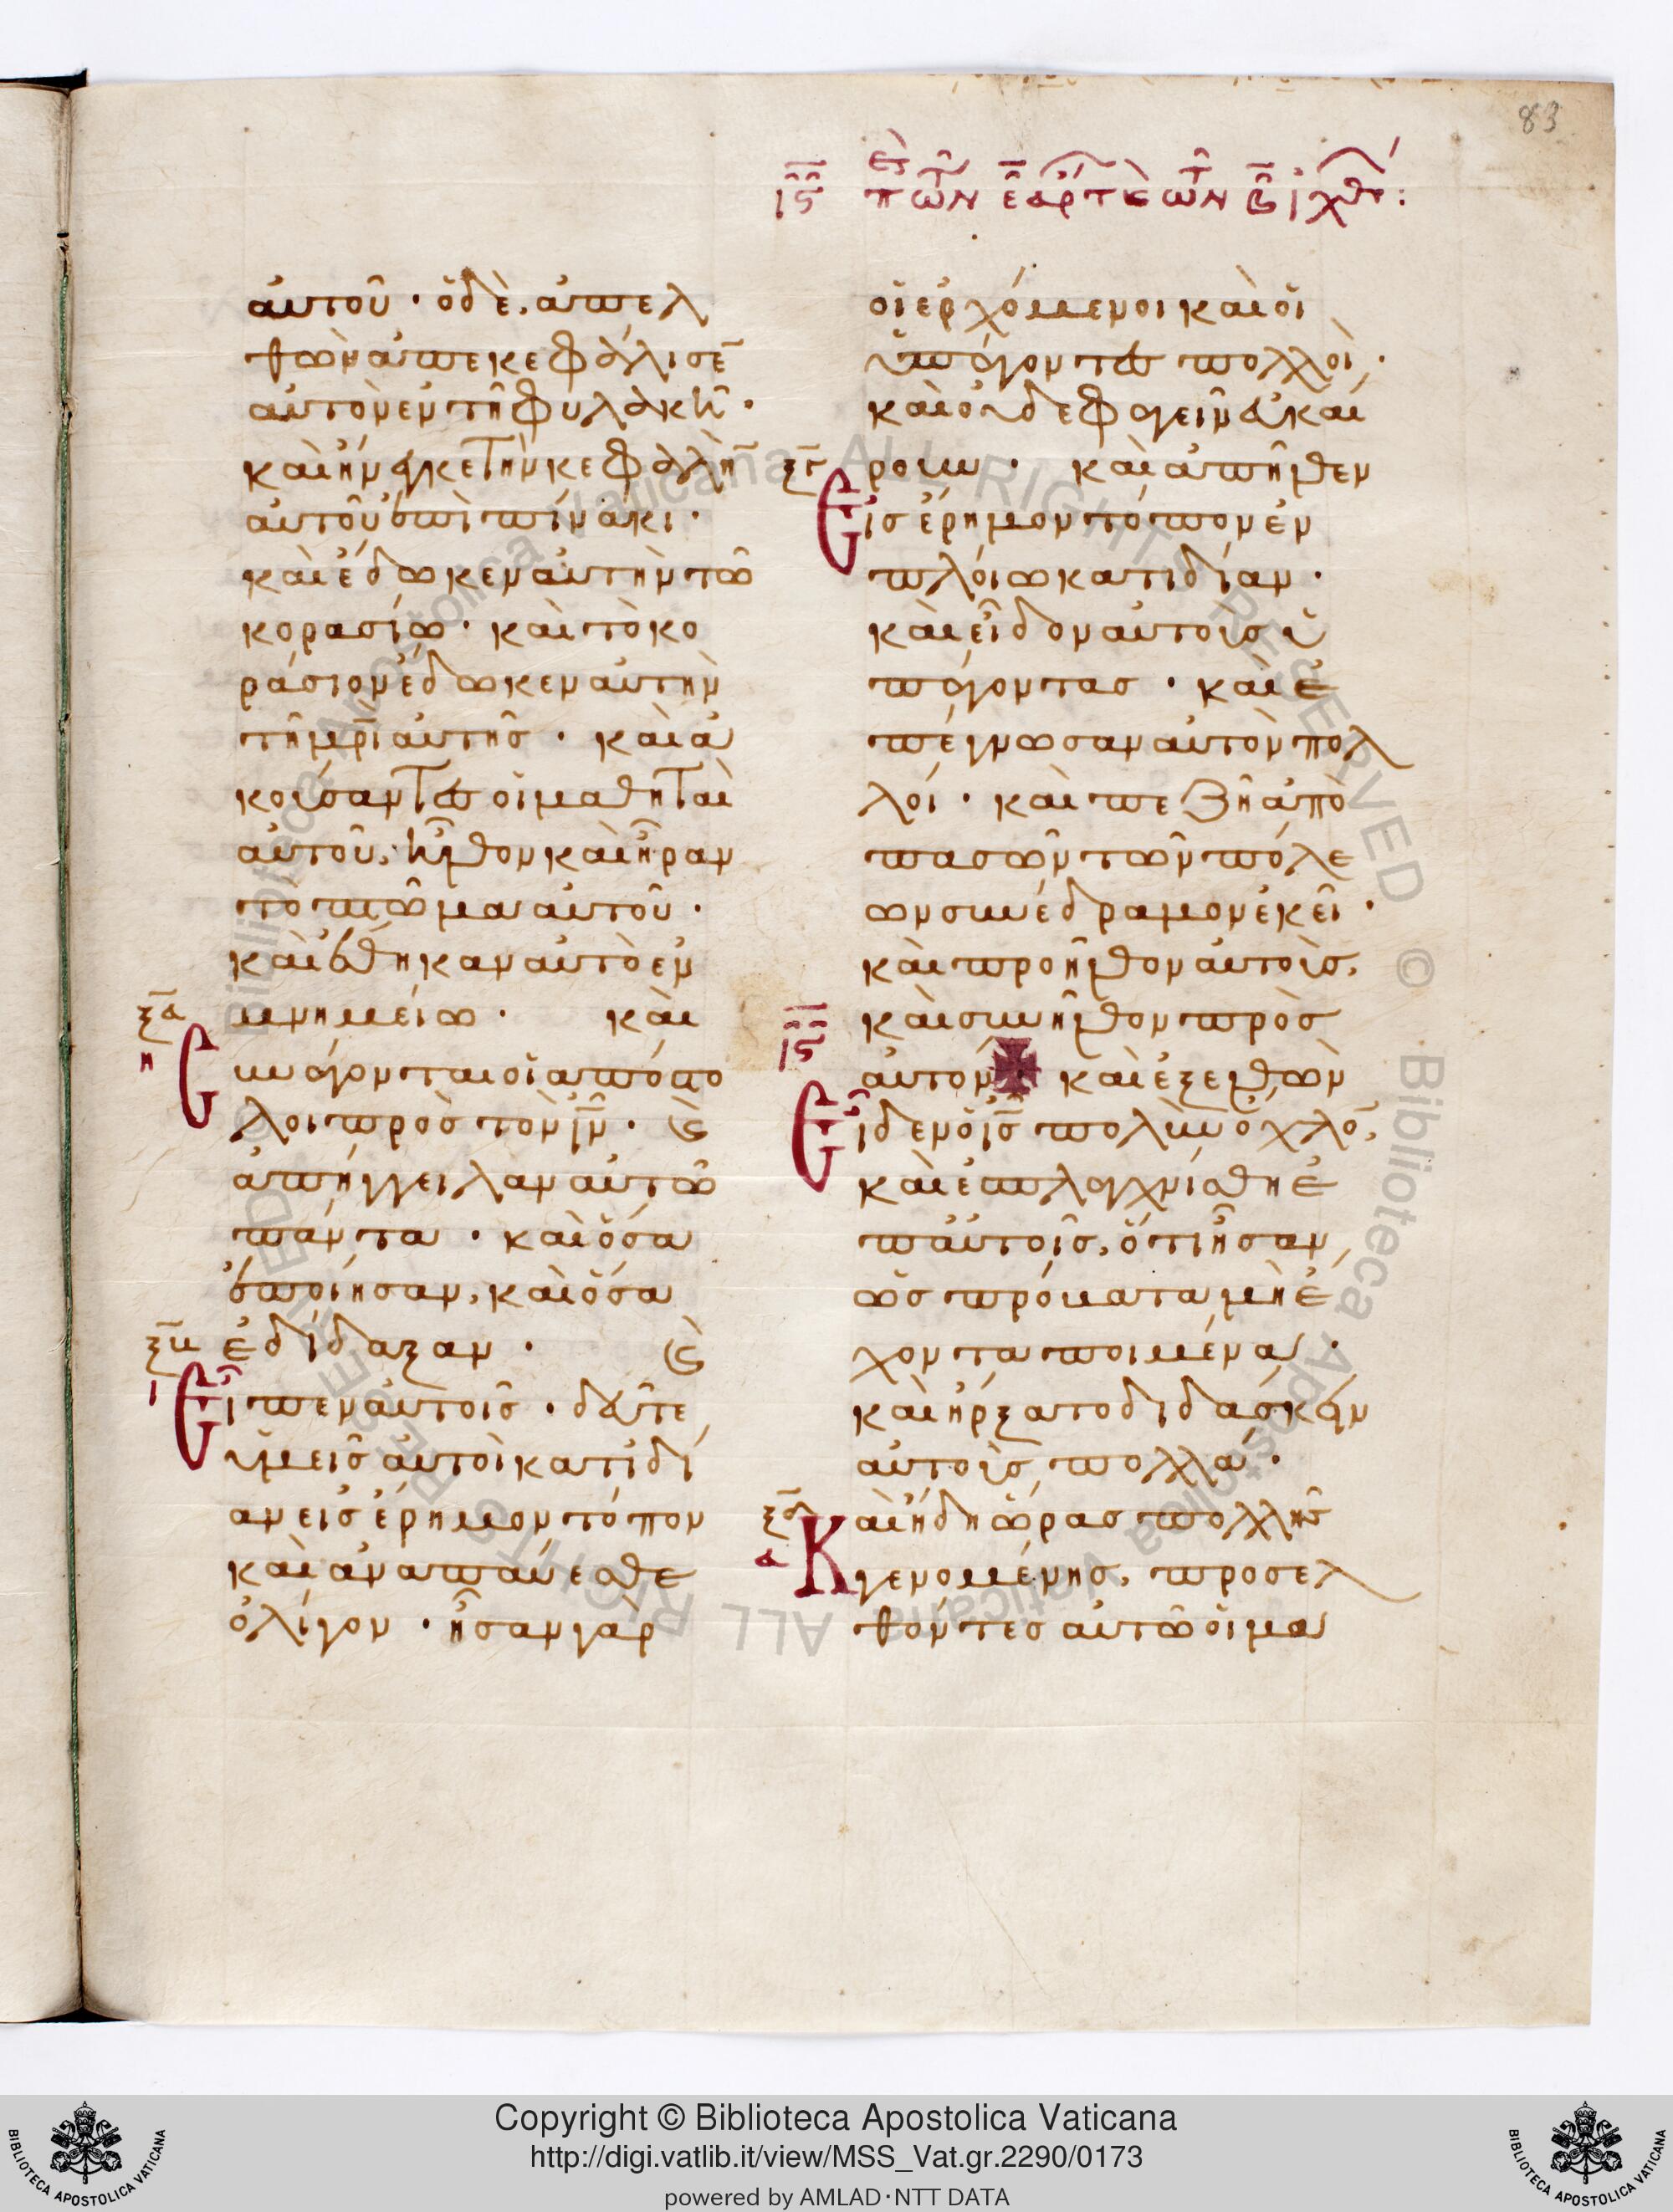 83
ις περι των ε αρτων και των β ιχθυων:
αὐτοῦ · ὁ δὲ, ἀπελ
θὼν ἀπεκεφάλισε̄
αὐτὸν ἐν τῆ φυλακῆ ·
καὶ ἤνεγκε τὴν κεφαλὴ̄
αὐτοῦ ἐπὶ πίνακι ·
καὶ ἔδωκεν αὐτὴν τῶ
κορασίω · καὶ τὸ κο
ράσιον ἔδωκεν αὐτὴν
τῆ μρ̄ὶ αὐτῆς · καὶ ἀ
κούσαντες οἱ μαθηταὶ
αὐτοῦ, ἦλθον καὶ ἦραν
τὸ πτῶμα αὐτοῦ ·
καὶ ἔθηκαν αὐτὸ ἐν
ξα μνημείω · καὶ
η Συνάγονται οἱ απόστο
λοι πρὸς τὸν ιν̄ · καὶ
ἀπήγγειλαν αὐτῶ
πάντα · καὶ ὅσα
ἐποίησαν, καὶ ὅσα
ξβ ἐδίδαξαν · καὶ
ι Εἶπεν αὐτοῖς · δεῦτε
ὑμεῖς αὐτοὶ κατιδί
αν εἰς ἔρημον τόπον
καὶ αναπαύεσθε
ὀλίγον · ἦσαν γαρ
οἱ ερχόμενοι καὶ οἱ
ὑπάγοντες πολλοὶ ·
καὶ οὐδε φαγεῖν εὐκαί
ξγ ρουν · καὶ ἀπῆλθεν
Εἰς ἔρημον τόπον ἐν
πλοίω κατιδίαν ·
καὶ εἶδον αὐτοὺς ὑ
πάγοντας · καὶ ἐ
πέγνωσαν αὐτὸν πολ
λοί · καὶ πεζῆ ἀπὸ
πασῶν τῶν πόλε
ων συνέδραμον ἐκεῖ ·
καὶ προῆλθον αὐτοὺς,
καὶ συνῆλθον πρὸς
ις αὐτόν · καὶ ἐξελθὼν
Εἶδεν ὁ ις̄ πολὺν ὄχλο̄,
καὶ ἐσπλαγχνίσθη ἐ
π αὐτοῖς, ὅτι ἦσαν,
ὡς πρόβατα μὴ ἔ
χοντα ποιμένα ·
καὶ ἤρξατο διδάσκειν
αὐτοὺς πολλά ·
ξδ Καὶ ἤδη ὥρας πολλῆς
α γενομένης, προσελ
θόντες αὐτῶ οἱ μα
Copyright © Biblioteca Apostolica Vaticana
http://digi.vatlib.it/view/MSS_Vat.gr.2290/0173
powered by AMLAD·NTT DATA
BIBLIOTECA APOSTOLICA VATICANA
BIBLIOTECA APOSTOLICA VATICANA